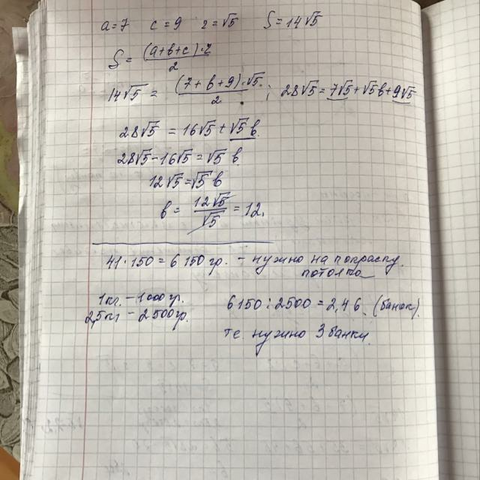 a=7 c=9 r=√5 S=14√5
S = (a+b+c)·r / 2
14√5 = (7+b+9)·√5 / 2 ; 28√5 = 7√5+√5b+9√5
28√5 = 16√5 + √5 b
28√5 - 16√5 = √5 b
12√5 = √5 b
b = 12√5 / √5 = 12.
41·150 = 6150 гр. - нужно на покраску
потолка
1кг. - 1000гр.
2,5кг - 2500гр.
6150 : 2500 = 2,46 (банок).
т.е. нужно 3 банки.